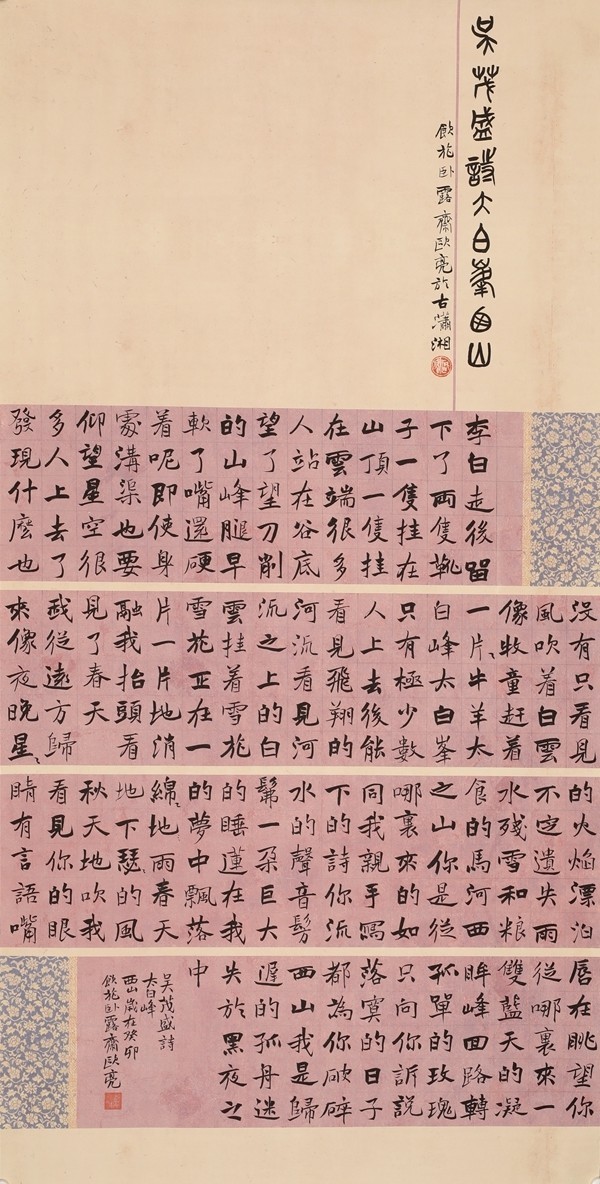 吳茂盛詩大白峯西山
飲於卧露齋歐亮於古瀟湘
李白走後留
下了兩隻靴
子一隻挂在
山頂一隻挂
在雲端很多
人站在谷底
望了望刀削
的山峰腿早
軟了嘴還硬
着呢即使身
處溝渠也要
仰望星空很
多人上去了
發現什麼也
没有只看見
風吹着白雲
像牧童赶着
一片々牛羊太
白峰太白峯
只有極少數
人上去後能
看見飛翔的
河流看見河
流之上的白
雲挂着雪花
雪花正在一
片一片地消
融我抬頭看
見了春天
我從遠方歸
來像夜晚星々
的火焰漂泊
不定遺失雨
水殘雪和粮
食的馬河西
之山你是從
哪裏來的如
同我親手寫
下的詩你流
水的聲音髣
髴一朵巨大
的睡蓮在我
的夢中飄落
綿々地雨春天
地下瑟々的風
秋天地吹我
看見你的眼
睛有言語嘴
唇在眺望你
從哪裏來一
雙藍天的凝
眸峰回路轉
孤單的玫瑰
只向你訴說
落寞的日子
都為你破碎
西山我是歸
遲的孤舟迷
失於黑夜之
中
吳茂盛詩
太白峰
西山歲在癸卯
飲於卧露齋歐亮